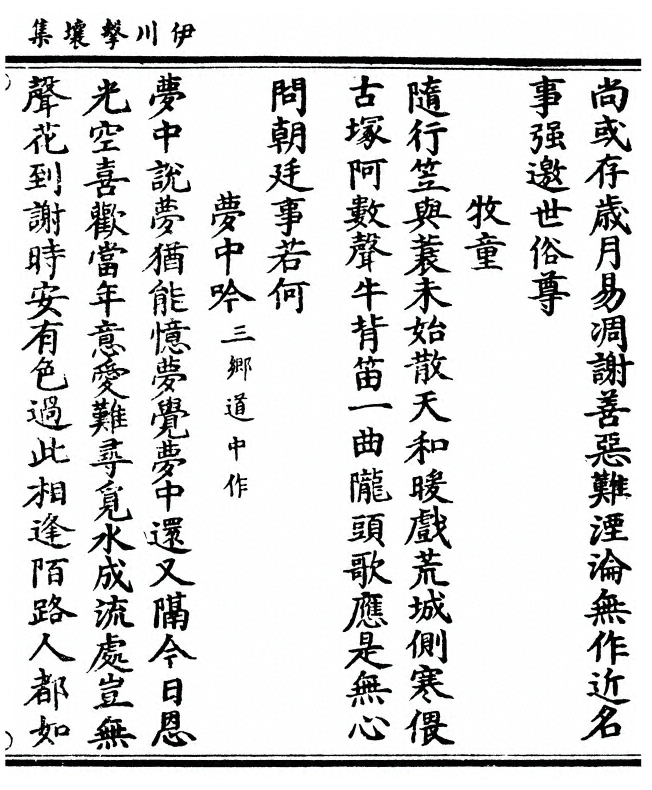 伊川擊壤集
尚或存歲月易凋謝善惡難湮淪無作近名
事强邀世俗尊
牧童
隨行笠與蓑未始散天和暖戲荒城側寒偎
古塚阿數聲牛背笛一曲隴頭歌應是無心
問朝廷事若何
夢中吟三鄉道中作
夢中說夢猶能憶夢覺夢中還又隔今日恩
光空喜歡當年意愛難尋覓水成流處豈無
聲花到謝時安有色過此相逢陌路人都如